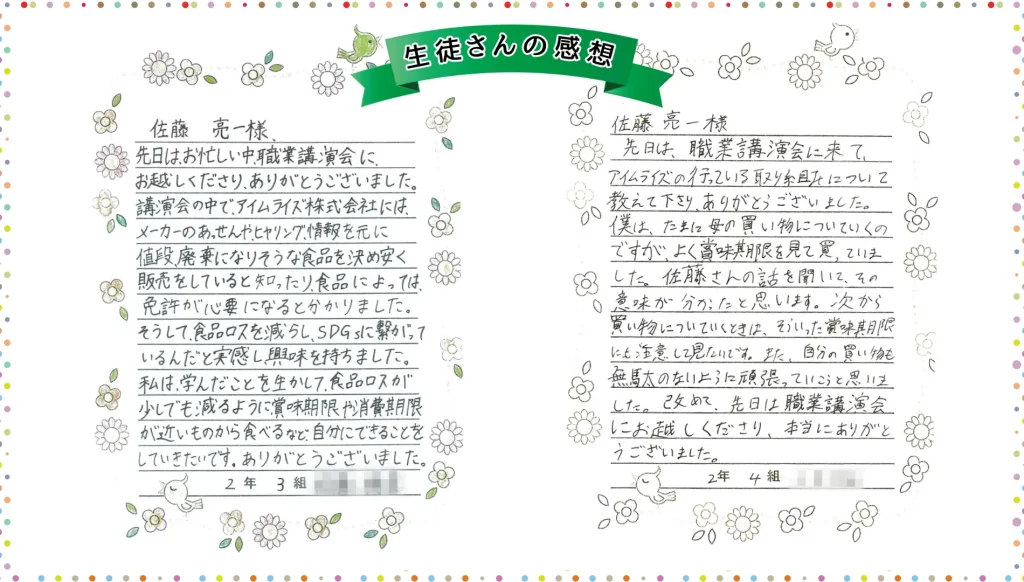 生徒さんの感想
佐藤 亮一様、
先日は、お忙しい中、職業講演会に、
お越しくださり、ありがとうございました。
講演会の中で、アイムライズ株式会社には、
メーカーのあっせんや、ヒヤリング、情報を元に
値段、廃棄になりそうな食品を決め安く
販売をしていると知ったり、食品によっては、
免許が必要になると分かりました。
そうして、食品ロスを減らし、SDGsに繋がって
いるんだと実感し、興味を持ちました。
私は、学んだことを生かして、食品ロスが
少しでも減るように賞味期限や消費期限
が近いものから食べるなど、自分にできることを
していきたいです。ありがとうございました。
2年 3組
佐藤 亮一様
先日は、職業講演会に来て、
アイムライズの行っている取り組みについて
教えて下さり、ありがとうございました。
僕は、たまに母の買い物についていくの
ですが、よく賞味期限を見て買っていま
した。佐藤さんの話を聞いて、その
意味が分かったと思います。次から
買い物についていくときは、そういった賞味期限
にも注意して見たいです。また、自分の買い物も
無駄のないように頑張っていこうと思いま
した。改めて、先日は職業講演会
にお越しくださり、本当にありがと
うございました。
2年 4組